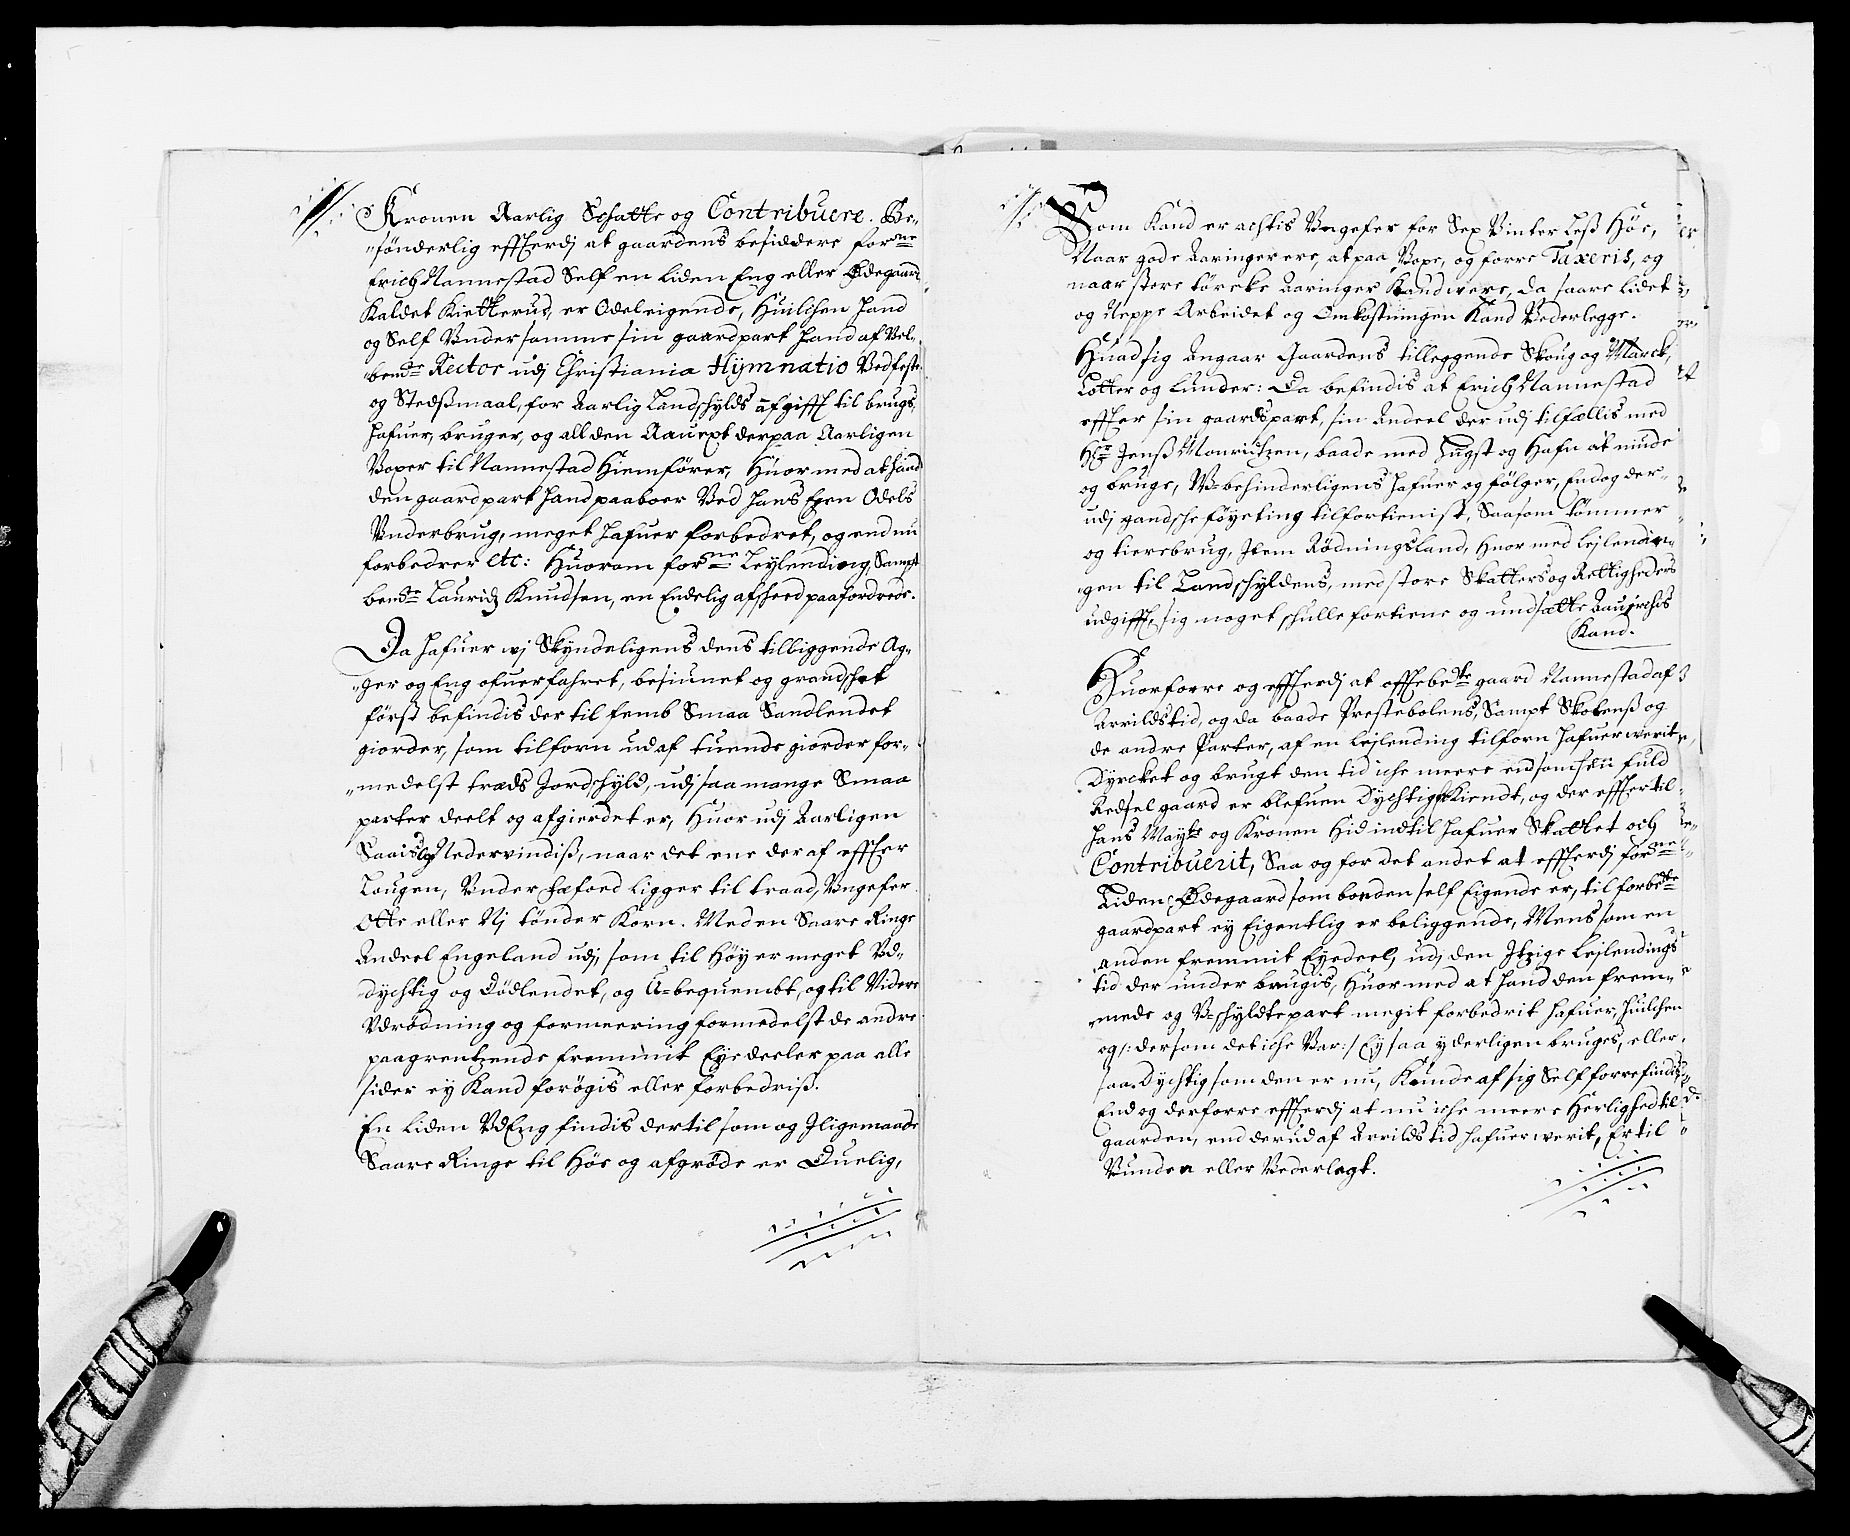 Kronen Aarlig Schatte og Contribuere. Be-
sønderlig effterdj at gaardens besiddere forne
Erich Nannestad Self en liden Eng eller Ødegaard
Kaldet Kietterud, er Odeleigende, Huilchen hand
og Self Vnder samme sin gaardpart hand af Vel-
bende Rector udj Christiania Hÿmnatio Vedfeste
og Stedßmaal, for Aarlig Landschylds afgifft til brugs
hafuer, bruger, og all den Aauext derpaa Aarligen
Voxer til Nannestad Hiemfører, Huor med at hand
den gaardpart hand paaboer Ved hans Egen Odels
Vnderbrug, meget hafuer forbedret, og end nu
forbedrer etc: Huorom forne Leylending, Sampt
bente Lauridz Knudsen, en Endelig afscheed paafordrede.
Da hafuer wj Skyndeligens dens tilliggende Ag-
ger og Eng ofuerfahret, besiunet og grandschet
først befindis der til femb Smaa Sandlendet
giorder, som tilforn ud af tuende giorder for-
medelst træds Jordschyld, udj saa mange Smaa
parter deelt og afgierdet er, Huor udj Aarligen
Saais og Nedervindiß, naar det ene der af effter
Laugen, Vnder Hæford ligger til traad, Vngefer
Otte eller Nj tønder Korn. Meden Saare Ringe
Andeel Engeland udj, som til Høy er meget Vd-
dychtig og Dødlendet, og V-bequembt, og til Videre
Vdrødning og formeering formedelst de andre
paagrentzende fremmit Eyedeeler paa alle
sider ey Kand forøgis eller forbedriß.
En Liden VdEng findis dertil som og Jligemaade
Saare Ringe til Høe og afgrøde er Duelig,
Som Kand er achtis Vngefer for Sex Vinter Leß Høe,
Naar gode Aaringer ere, at paa Voxe, og forre Taxeris, og
naar store tørcke Aaringer Kand were, da saare lidet
og Neppe Arbeidet og Omkostningen Kand Vederlegge.
Huad sig Angaar Gaardens tilleggende Skoug og Marck,
Lotter og Lunder: Da befindis at Erich Nannestad
effter sin gaardspart, sin Andeel der udj tilfællis med
Hr Jenß Mouritzen, baade med Hugst og Hafn at niude
og bruge, V-behinderligens hafuer og følger, Endog der-
udj gandsche føyeting tilfortienist, Saasom tømmer
og tierebrug, Item Rødningsland, Huor med Leylendin-
gen til Landschyldens, med store Skatters og Rettigheders
udgifft, sig noget schulle fortiene og undsætte
Kand.
Huorforre og effterdj at offtebete gaard Nannestad af
Arrilds tid, og da baade Prestebolens, Sampt Skolenß og
de andre Parter, af en Leylending tilforn hafuer werit
Dyrcket og brugt den tid iche meere end som een fuld
Redsel gaard er blefuen Dychtig Kiendt, og der effter til
Hans Maytz og Kronen Hid indtil hafuer Skattet och
Contribuerit, Saa og for det andet at effterdj forne
Liden Ødegaard som bonden self Eigende er, til forbete
gaardpart ey Eigentlig er beliggende, Mens som en
anden fremmit Eyedeel, udj den Itzige Leylendings
tid der under brugis, Huor med at hand den frem-
mede og V-schyldte part megit forbedrit hafuer, Huilchen
og /: dersom det iche Var :/ Ey saa yderligen bruges, eller
saa Dychtig som den er nu, Kunde af sig Self forrefindes,
End og derforre effterdj at nu iche meere Herlighed til
gaarden, end derud af Arrilds tid hafuer werit, Er til
Vunden eller Vederlagt.